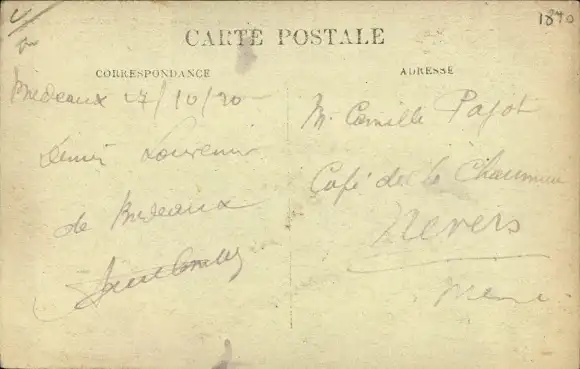 1840
CARTE POSTALE
CORRESPONDANCE
Bordeaux 27/10/20
Souvenir
de Bordeaux
ADRESSE
M. Camille Pajot
Café de la Chaumière
Nevers